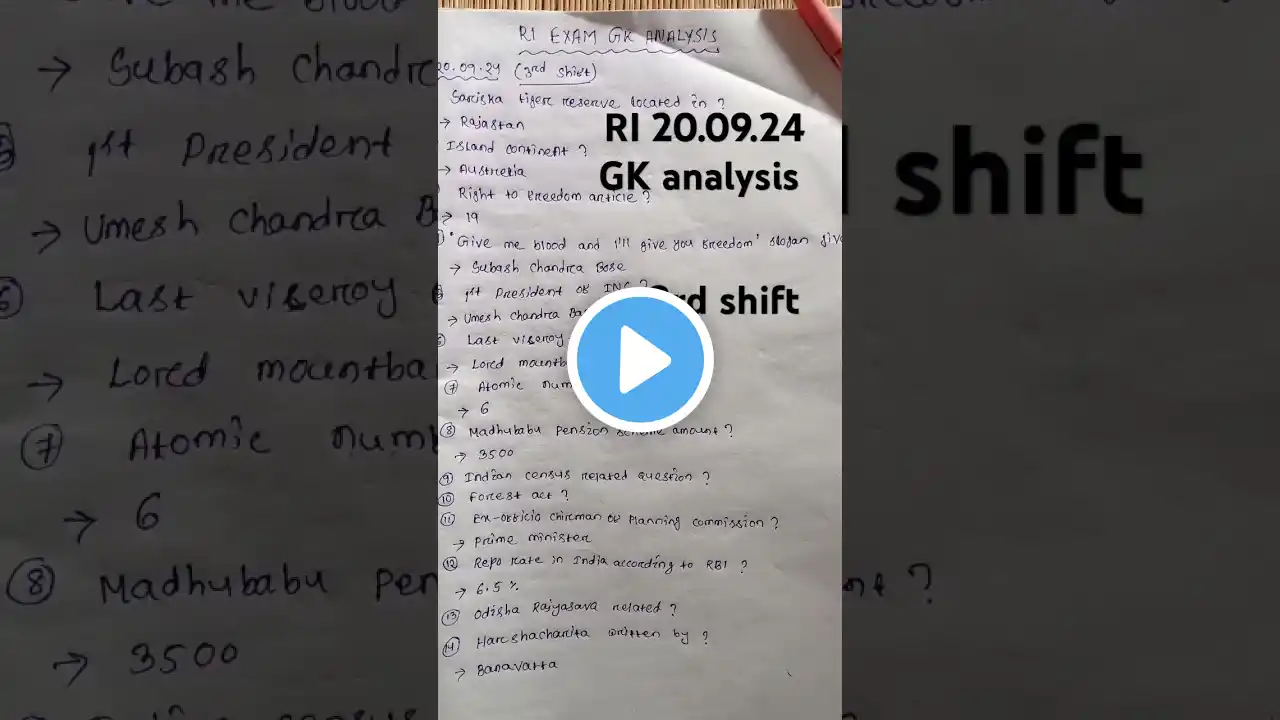 RI EXAM GK ANALYSIS
20.09.24 (3rd shift)
Sariska tiger reserve located in ?
→ Rajastan
Island continent ?
→ Austrelia
Right to freedom article ?
→ 19
'Give me blood and I'll give you freedom' slogan give
→ Subash Chandra Bose
1st President of INC ?
→ Umesh Chandra Ba
Last viseroy
→ Lord mountba
⑦ Atomic num
→ 6
⑧ Madhubabu pension scheme amount ?
→ 3500
⑨ Indian census related question ?
⑩ Forest act ?
⑪ Ex-officio chirman of Planning commission ?
→ Prime minister
⑫ Repo rate in India according to RBI ?
→ 6.5 %
⑬ Odisha Rajyasava related ?
⑭ Harshacharita written by ?
→ Banavatta
RI 20.09.24
GK analysis
3rd shift
→ Subash Chandra
1st President
→ Umesh Chandra B
⑥ Last viseroy
→ Lord mountba
⑦ Atomic numb
→ 6
⑧ Madhubabu pen
→ 3500
shift
nt ?